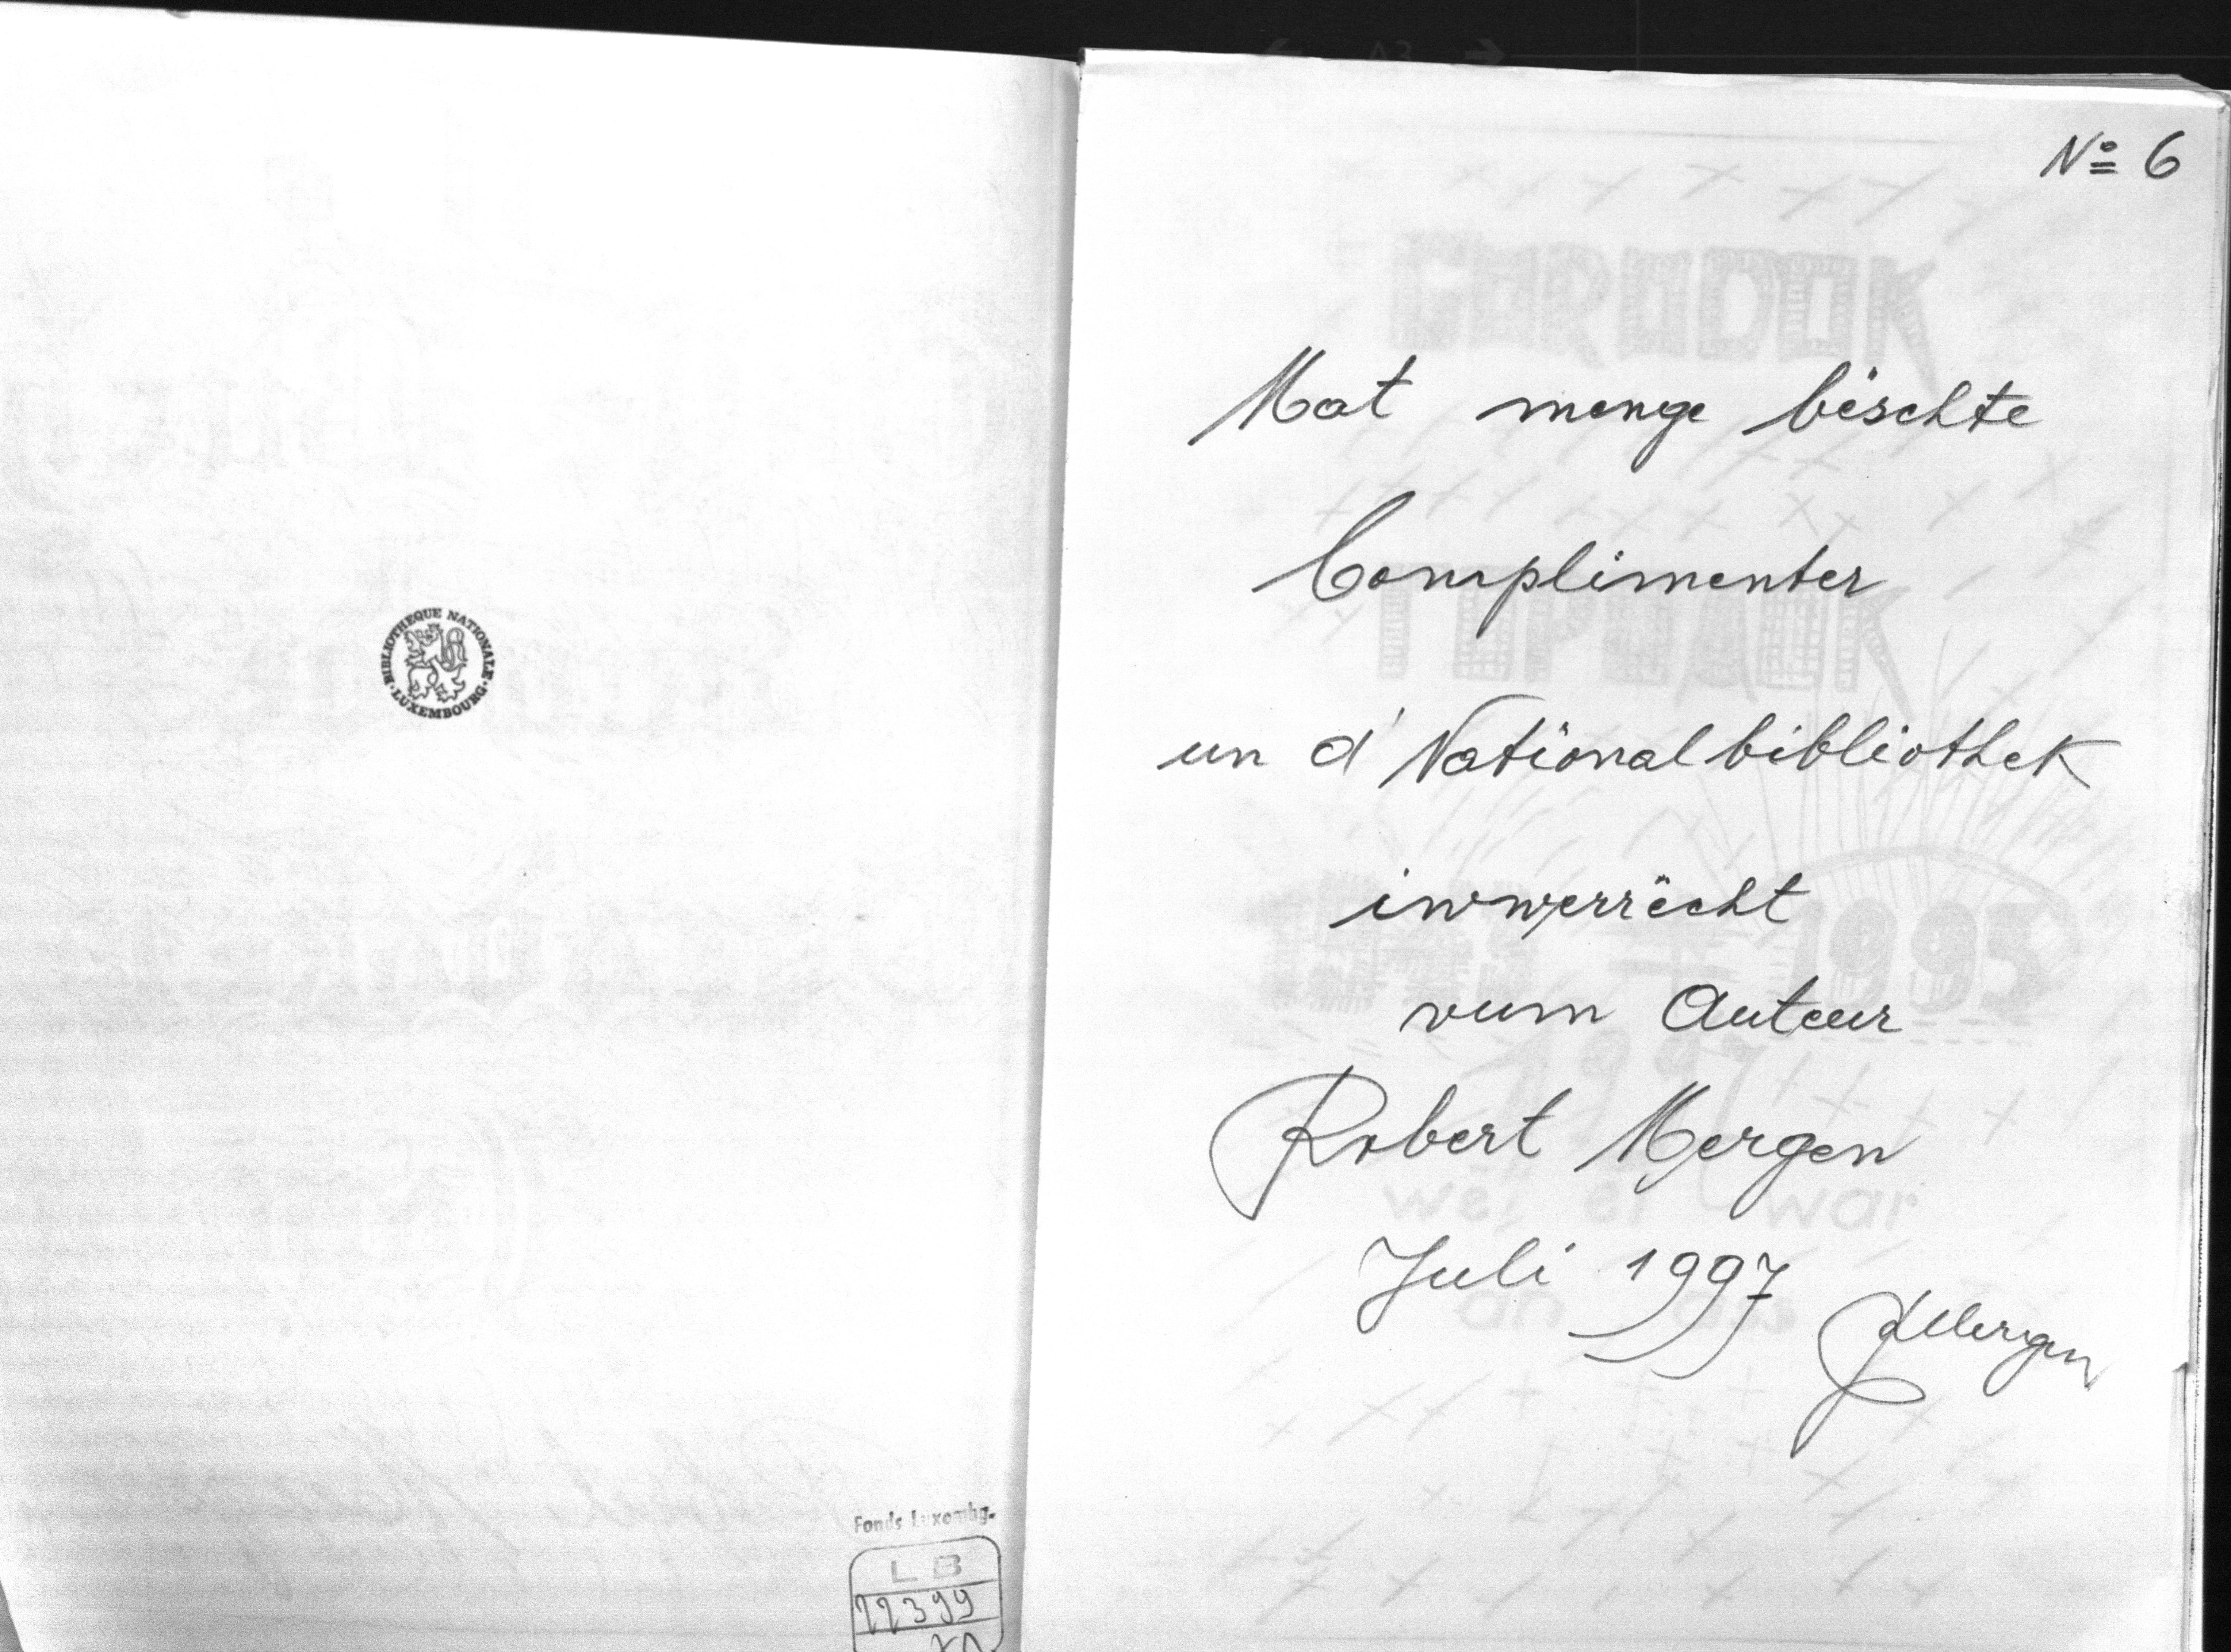 BIBLIOTHEQUE NATIONALE
· LUXEMBOURG ·
Fonds Luxembg.
L B
22399
No 6
Mat menge bëschte
Complimenter
un d'Nationalbibliothek
iwwerrëcht
vum Auteur
Robert Mergen
Juli 1997
RMergen